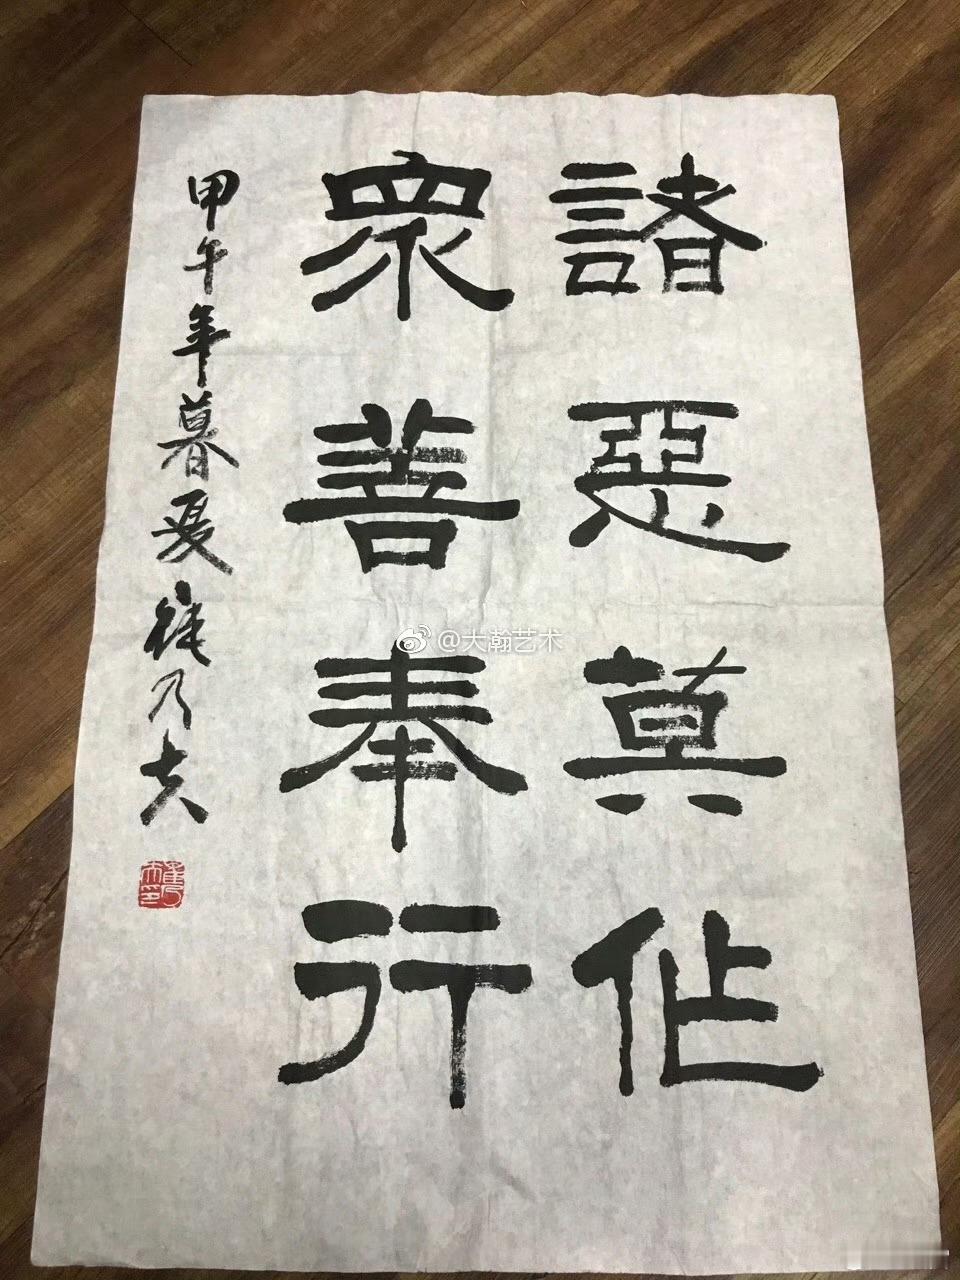 諸惡莫作
衆善奉行
甲午年暮夏崔乃夫
@大瀚艺术